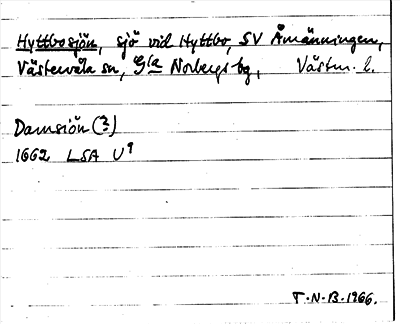 Hyttbosjön, sjö vid Hyttbo, SV Åmänningen,
Västervåla sn, Gla Norbergs bg, Västm. l.
Damsiön (?)
1662 LSA U9
T.N.B. 1966.